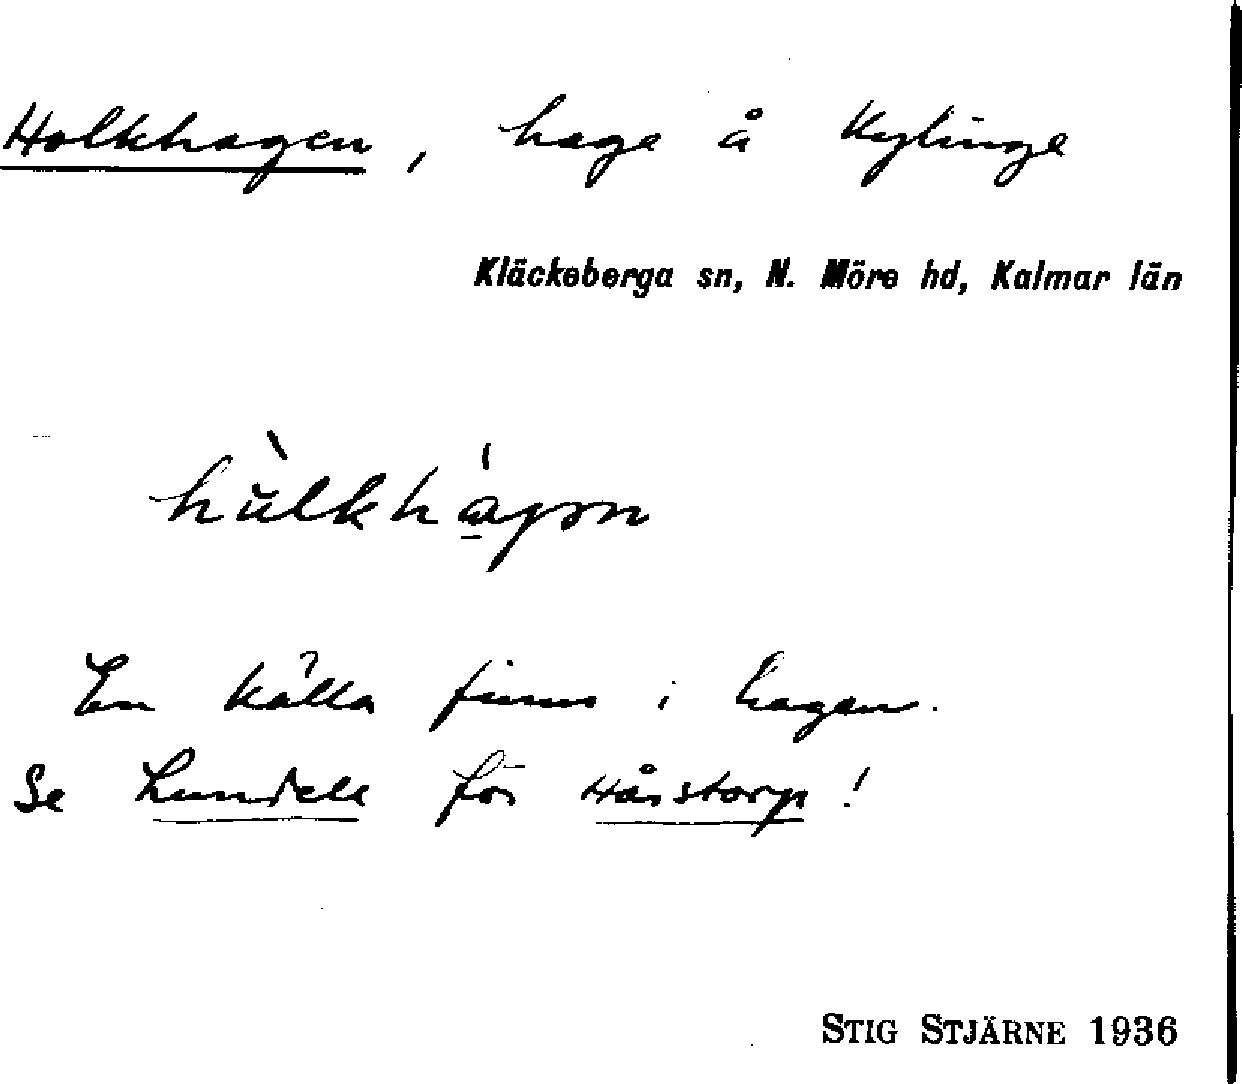 Holkhagen, hage å Kylinge
Kläckeberga sn, N. Möre hd, Kalmar län
En källa finns i hagen.
Se Lundell för Håstorp!
STIG STJÄRNE 1936